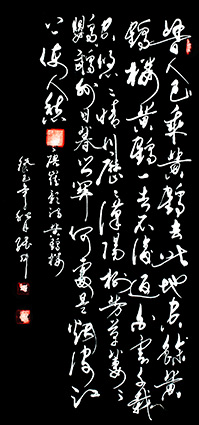 昔人已乘黃鶴去此地空餘黃
鶴樓黃鶴一去不復返白雲千載
空悠悠晴川歷歷漢陽樹芳草萋萋
鸚鵡洲日暮鄉關何處是煙波江
上使人愁
唐崔顥詩黃鶴樓
癸巳年